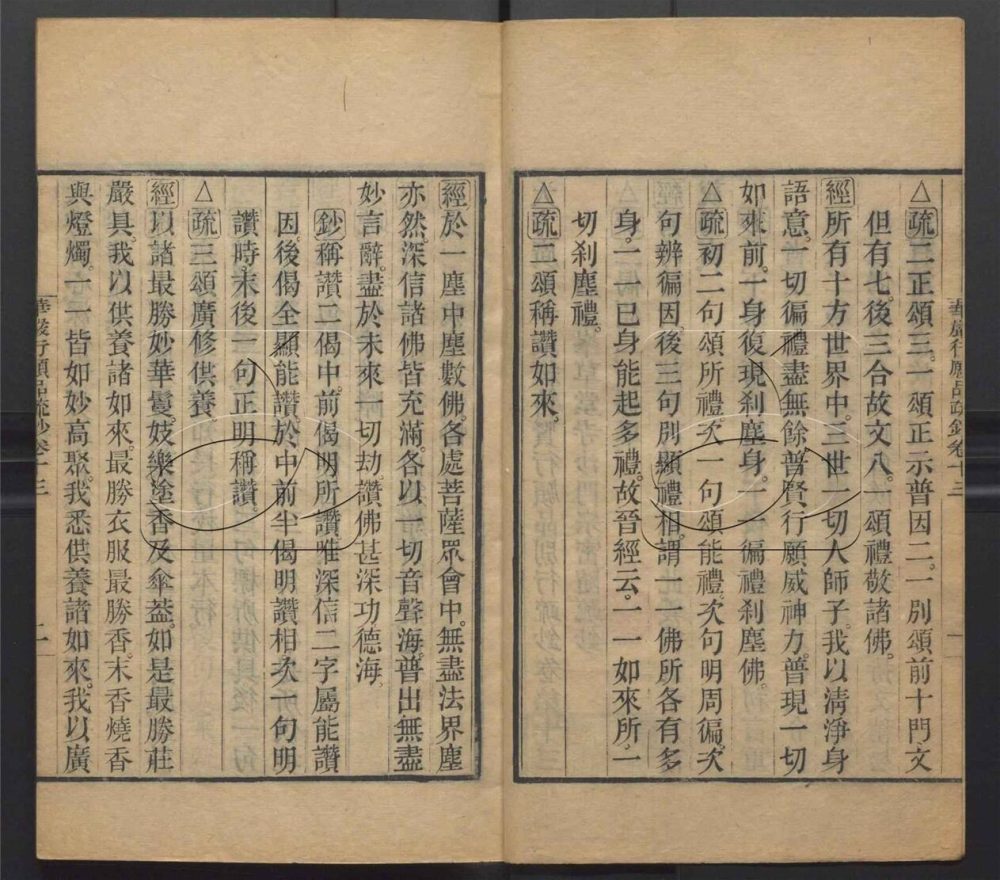 華嚴行願品疏鈔卷十三 一
△疏二正頌三。一頌正示普因二。一別頌前十門文
但有七。後三合故文八。一頌禮敬諸佛。
經所有十方世界中。三世一切人師子。我以清淨身
語意。一切徧禮盡無餘普賢行願威神力。普現一切
如來前。一身復現刹塵身。一一徧禮刹塵佛。
△疏初二句頌所禮。次一句頌能禮。次句明周徧。次
句辨徧因。後三句別顯禮相。謂一一佛所各有多
身。一一已身能起多禮。故晉經云。一一如來所。一
切刹塵禮。
△疏二頌稱讚如來。
經於一塵中塵數佛。各處菩薩眾會中。無盡法界塵
亦然。深信諸佛皆充滿。各以一切音聲海。普出無盡
妙言辭。盡於未來一切劫。讚佛甚深功德海。
鈔稱讚二偈中。前偈明所讚。唯深信二字屬能讚
因。後偈全顯能讚。於中前半偈明讚相。次一句明
讚時。末後一句正明稱讚。
△疏三頌廣修供養。
經以諸最勝妙華鬘。妓樂塗香及傘葢。如是最勝莊
嚴具。我以供養諸如來。最勝衣服最勝香。末香燒香
與燈燭。一一皆如妙高聚。我悉供養諸如來。我以廣
華嚴行願品疏鈔卷十三 二